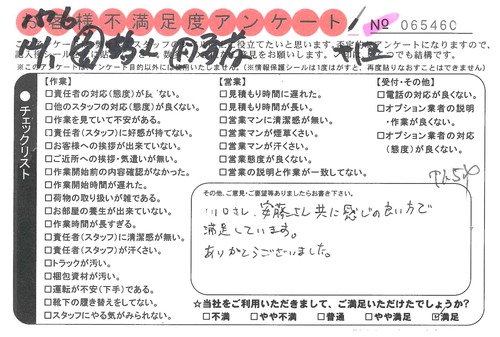 お客様不満足度アンケート
No 06546C
※このアンケートは、アンケート目的以外には使用いたしません。(※情報保護シールは1度はがすと、再度貼りなおすことはできません)
チェックリスト
【作業】
□責任者の対応(態度)が良くない。
□他のスタッフの対応(態度)が良くない。
□作業を見ていて不安がある。
□責任者(スタッフ)に好感が持てない。
□お客様への挨拶が出来ていない。
□ご近所への挨拶・気遣いが無い。
□作業開始前の内容確認がなかった。
□作業開始時間が遅れた。
□荷物の取り扱いが雑である。
□お部屋の養生が出来ていない。
□作業時間が長すぎる。
□責任者(スタッフ)に清潔感が無い。
□責任者(スタッフ)が汗くさい。
□トラックが汚い。
□梱包資材が汚い。
□運転が不安(下手)である。
□靴下の履き替えをしてない。
□スタッフにやる気がみられない。
【営業】
□見積もり時間に遅れた。
□見積もり時間が長い。
□営業マンに清潔感が無い。
□営業マンが煙草くさい。
□営業マンが汗くさい。
□営業態度が良くない。
□営業の説明と作業が一致してない。
【受付・その他】
□電話の対応が良くない。
□オプション業者の説明
・作業が良くない。
□オプション業者の対応
(態度)が良くない。
その他、ご意見・ご要望等ありましたらお書き下さい。
川口さん、安藤さん共に感じの良い方で
満足しています。
ありがとうございました。
☆当社をご利用いただきまして、ご満足いただけたでしょうか?
□不満 □やや不満 □普通 □やや満足 ☑満足